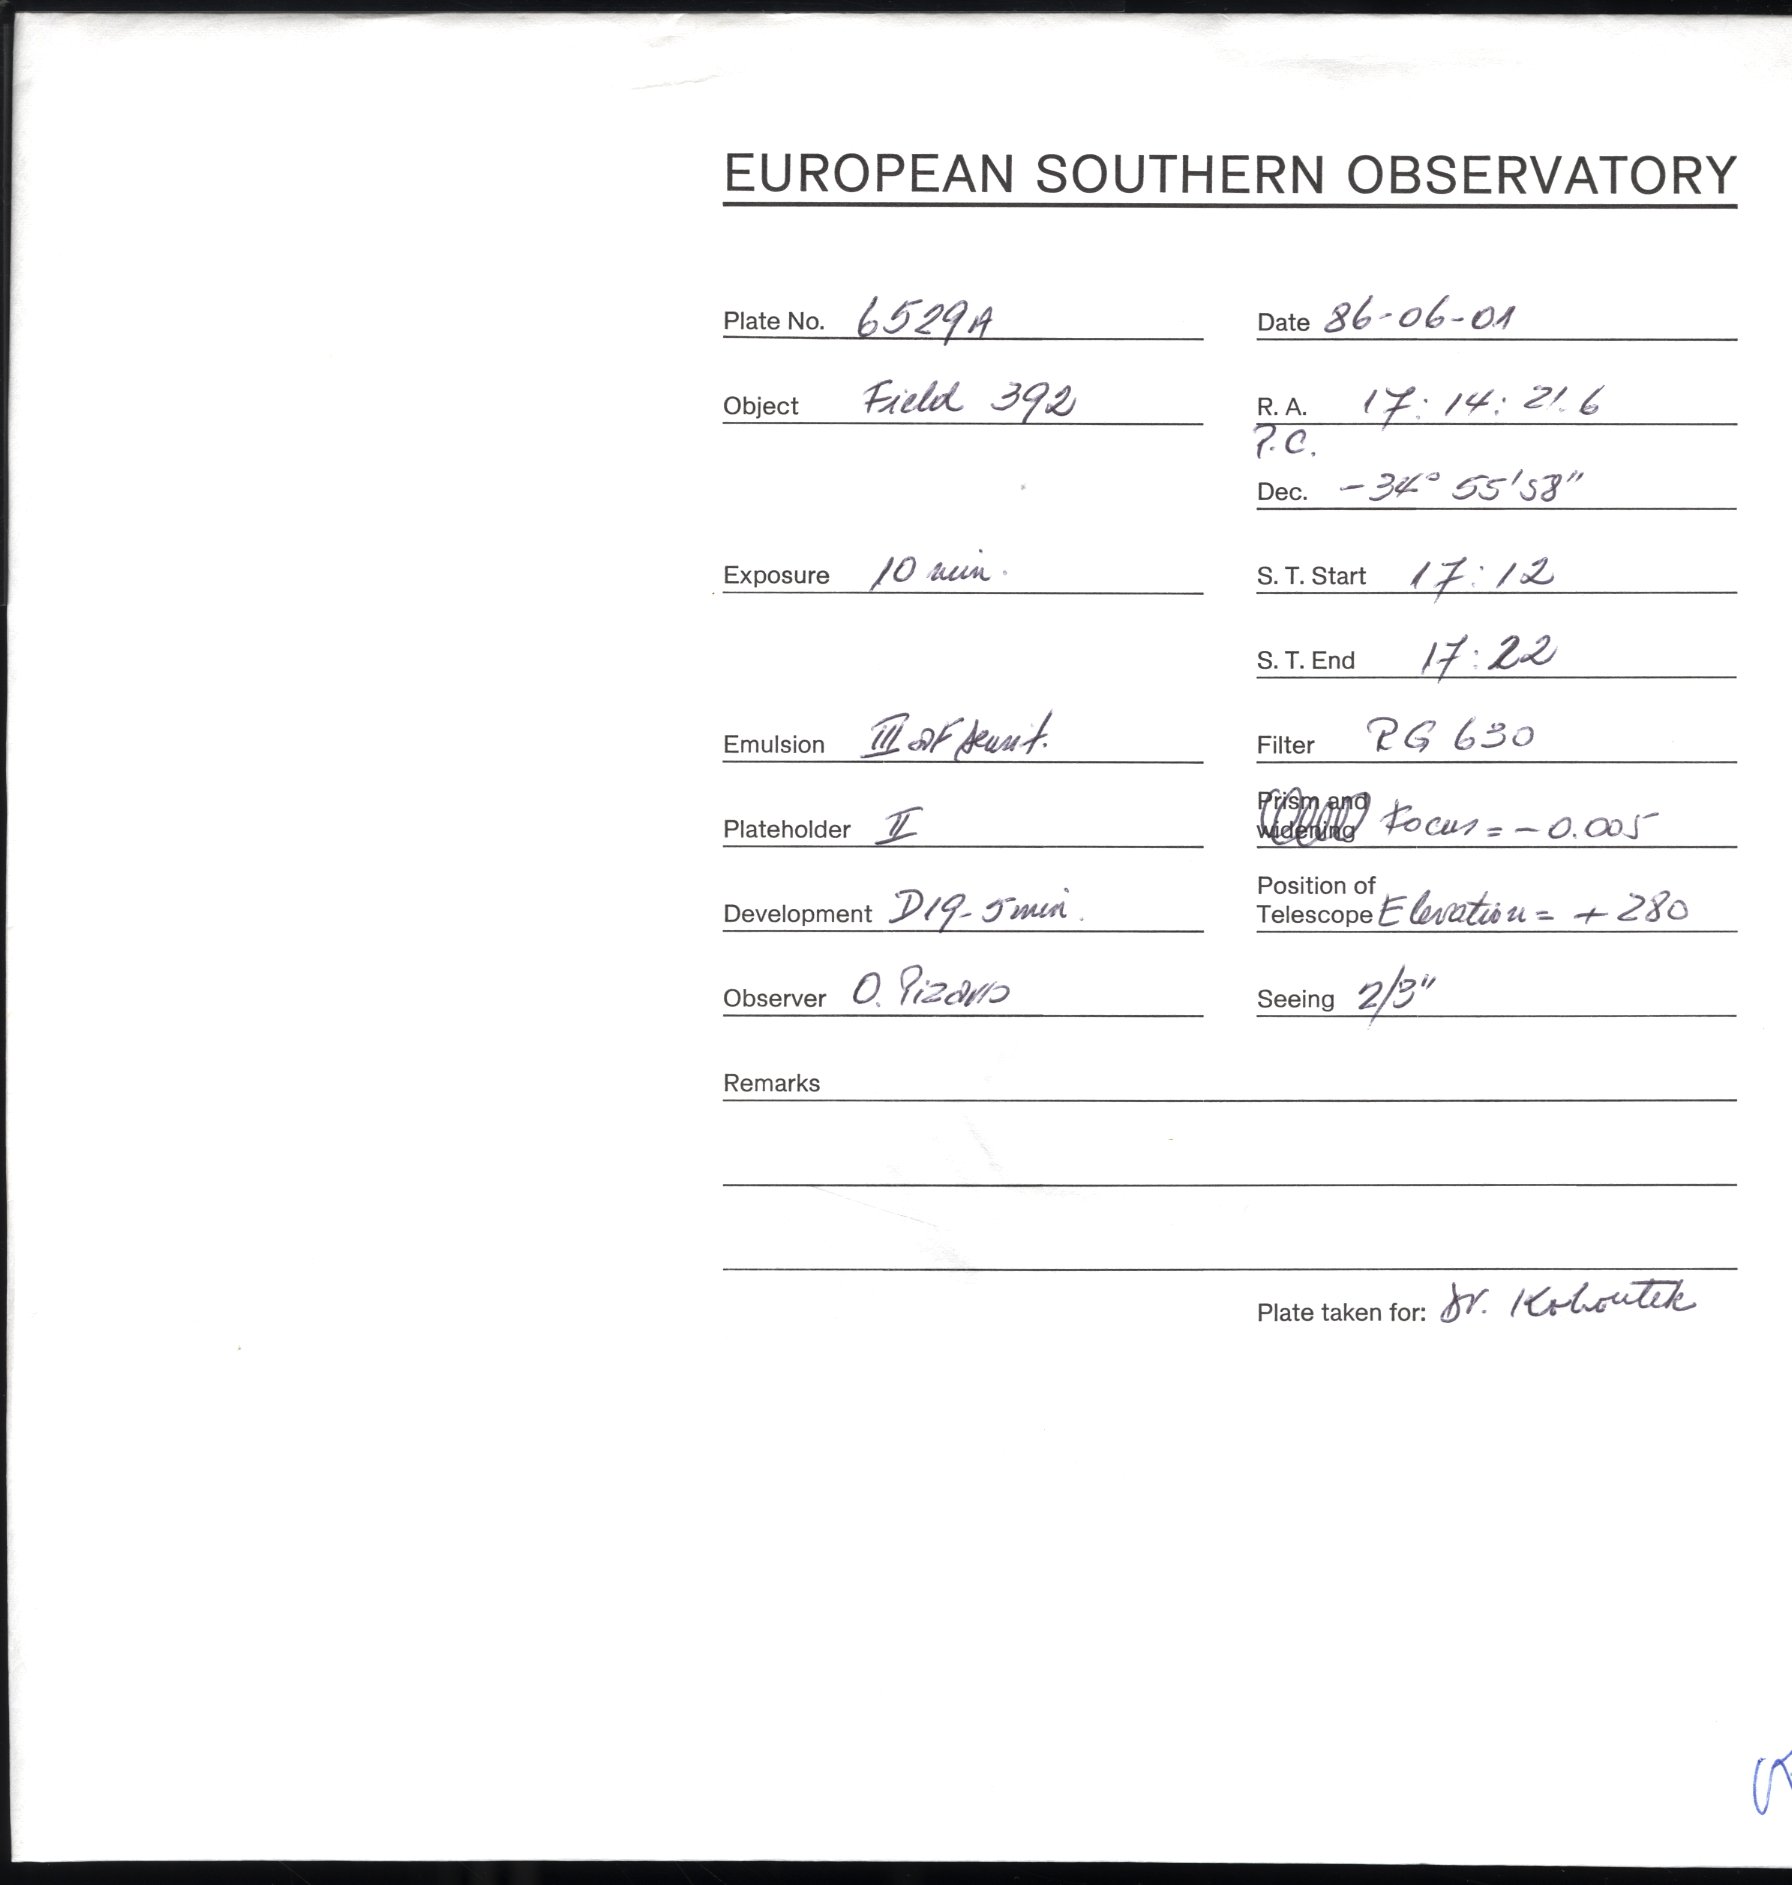 EUROPEAN SOUTHERN OBSERVATORY
Plate No. 6529A
Date 86-06-01
Object Field 392
R. A. 17: 14: 21.6
P.C.
Dec. -34° 55'58"
Exposure 10 min.
S. T. Start 17:12
S. T. End 17:22
Emulsion III aF
Filter RG 630
Plateholder II
Prism and
widening Focus = -0.005
Development D19-5min.
Position of
Telescope Elevation = +280
Observer O. Pizarro
Seeing 2/3"
Remarks
Plate taken for: Dr. Kohoutek